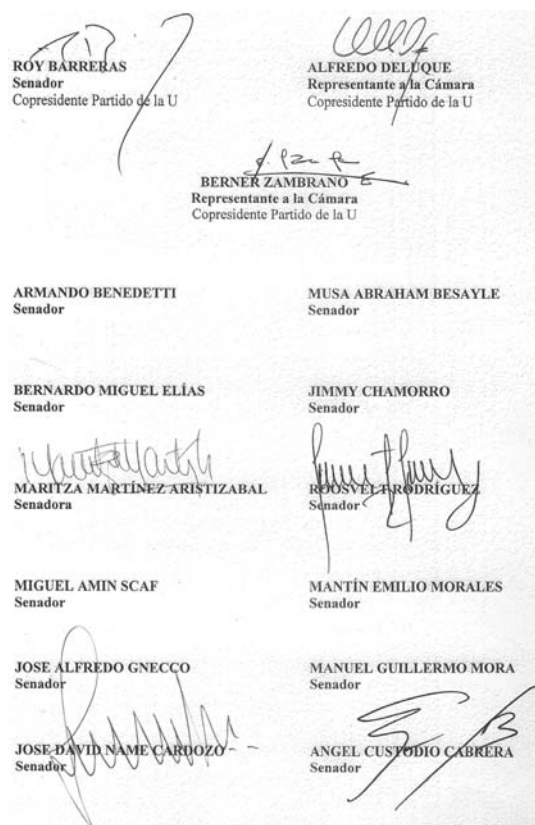 ROY BARRERAS
Senador
Copresidente Partido de la U
ALFREDO DELUQUE
Representante a la Cámara
Copresidente Partido de la U
BERNER ZAMBRANO
Representante a la Cámara
Copresidente Partido de la U
ARMANDO BENEDETTI
Senador
MUSA ABRAHAM BESAYLE
Senador
BERNARDO MIGUEL ELÍAS
Senador
JIMMY CHAMORRO
Senador
MARITZA MARTÍNEZ ARISTIZABAL
Senadora
ROOSVELT RODRÍGUEZ
Senador
MIGUEL AMIN SCAF
Senador
MANTÍN EMILIO MORALES
Senador
JOSE ALFREDO GNECCO
Senador
MANUEL GUILLERMO MORA
Senador
JOSE DAVID NAME CARDOZO
Senador
ANGEL CUSTODIO CABRERA
Senador